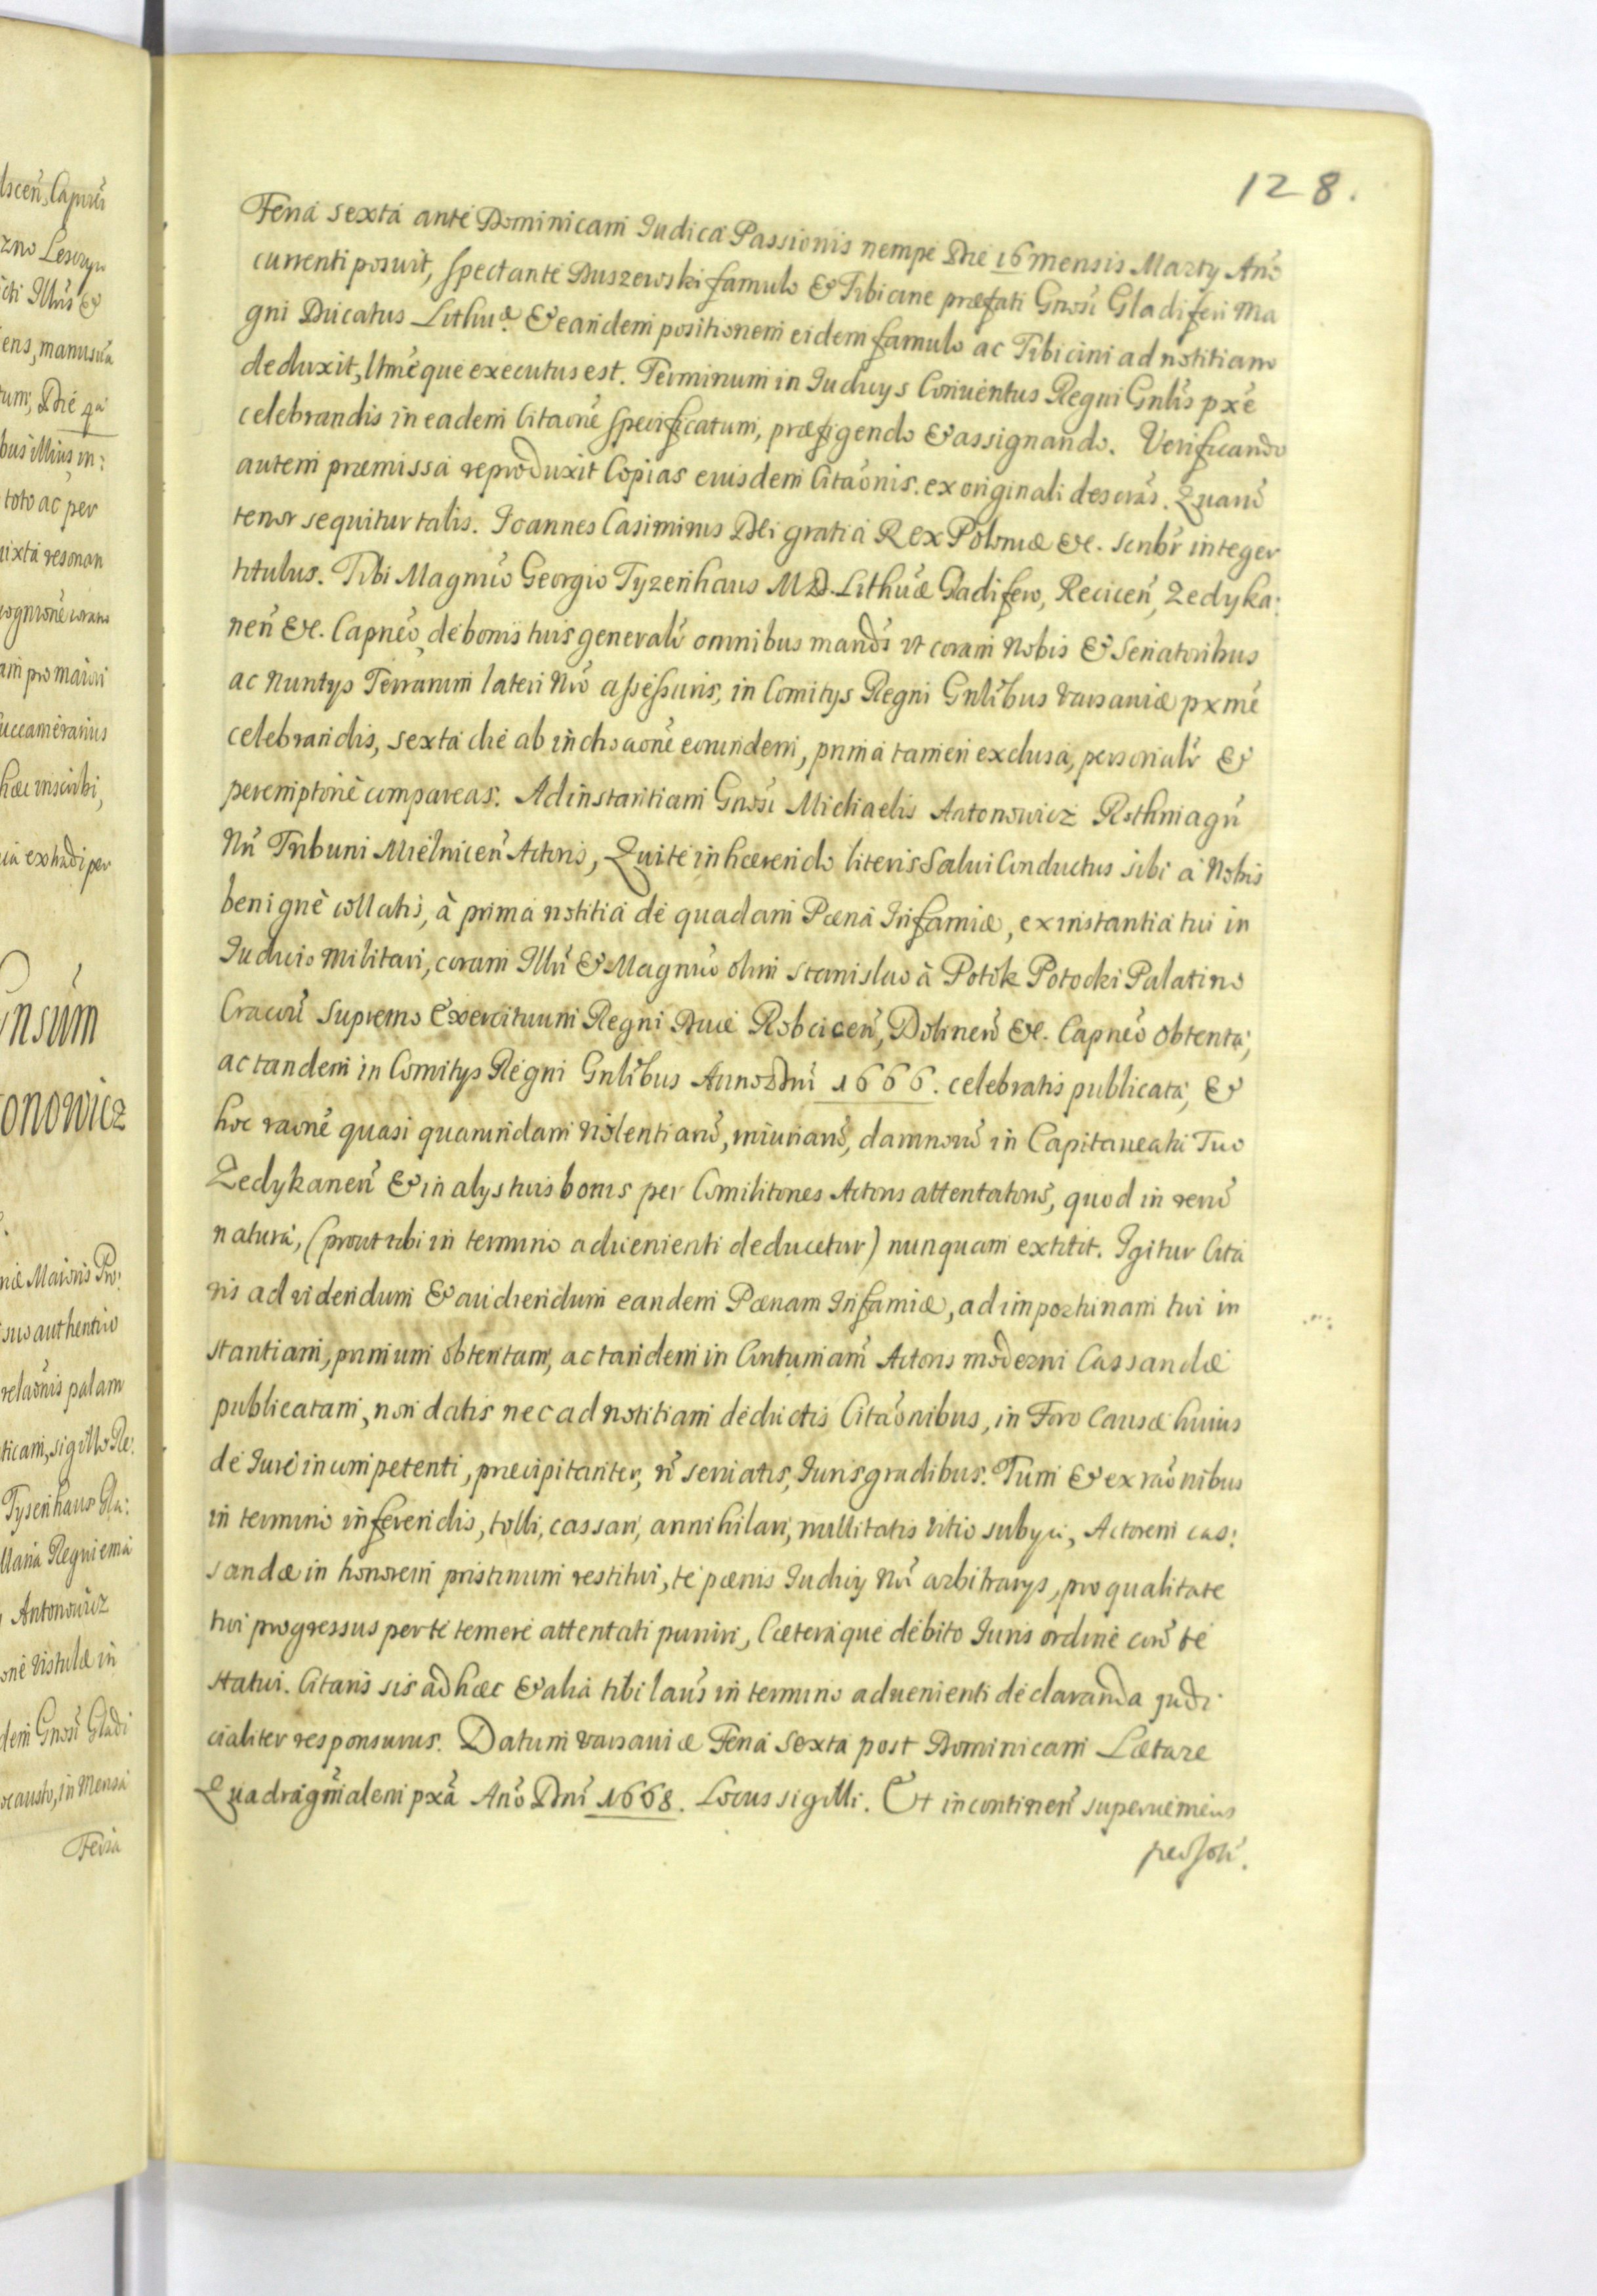 128.
Feria sexta ante Dominicam Iudica Passionis nempe Die 16 mensis Marty Anō
currenti posuit, spectante Duszewski famulo & Tibicine præfati Gnosi Gladiferi Ma
gni Ducatus Lithuæ. & eandem positionem eidem famulo ac Tibicini ad notitiam
deduxit, ltmē que executus est. Terminum in Iudicys Conventus Regni Gnlis pxē
celebrandis in eadem Citaōne specificatum, præfigendo & assignando. Verificando
autem præmissa reproduxit Copias eiusdem Citaōnis. ex originali descras. Quarū
tenor sequitur talis. Ioannes Casimirus Dei gratia Rex Poloniæ &c. scribr integer
titulus. Tibi Magnco Georgio Tyzenhaus M D. Lithuæ Gladifero, Recicen, Zedyka:
nen &c. Capneo, de bonis tuis generalr omnibus mandi vt coram Nobis & Senatoribus
ac Nuntys Terrarum lateri Nro assessuris, in Comitys Regni Gnlibus Varsauiæ pxmē
celebrandis, sexta die ab inchoaōne eorundem, prima tamen exclusa, personalr &
peremptoriē compareas. Ad instantiam Gnosi Michaelis Antonowicz Rothmagri
Nri Tribuni Mielnicen Actoris, Qui te inhærendo literis Salui Conductus sibi à Nobis
benignè collatis, à prima notitia de quadam Pœna Infamiæ, ex instantia tui in
Iudicio Militari, coram Illri & Magnco olim Stanislao à Potok Potocki Palatino
Cracou Supremo Exercituum Regni Duce Robcicen, Dolinen &c. Capneo obtenta,
ac tandem in Comitys Regni Gnlibus Anno Dni 1666. celebratis publicata, &
hoc raōne quasi quarundam violentiarū, iniuriarū, damnorū in Capitaneatu Tuo
Zedykanen & in alys tuis bonis per Comilitones Actoris attentatorū, quod in rerū
natura, (prout tibi in termino aduenienti deducetur) nunquam extitit. Igitur Cita
ris ad videndum & audiendum eandem Pœnam Infamiæ, ad importunam tui in
stantiam, primum obtentam, ac tandem in Contumam Actoris moderni Cassandæ
publicatam, non datis nec ad notitiam deductis Citaōnibus, in Foro Causæ huius
de Iure incompetenti, præcipitanter, ñ seruatis, Iuris gradibus. Tum & ex raōnibus
in termino inferendis, tolli, cassari, annihilari, nullitatis vitio subyci, Actorem cas:
sandæ in honorem pristinum restitui, te pœnis Iudicy Nri arbitrarys, pro qualitate
tui progressus per te temere attentati puniri, Cæteraque debito Iuris ordine circa te
statui. Citaris sis ad hæc & alia tibi latius in termino aduenienti declaranda judi
cialiter responsurus. Datum Varsauiæ Feria Sexta post Dominicam Lætare
Quadragmalem pxā Anō Dni 1668. Locus sigilli. Et incontinen superueniens
person.